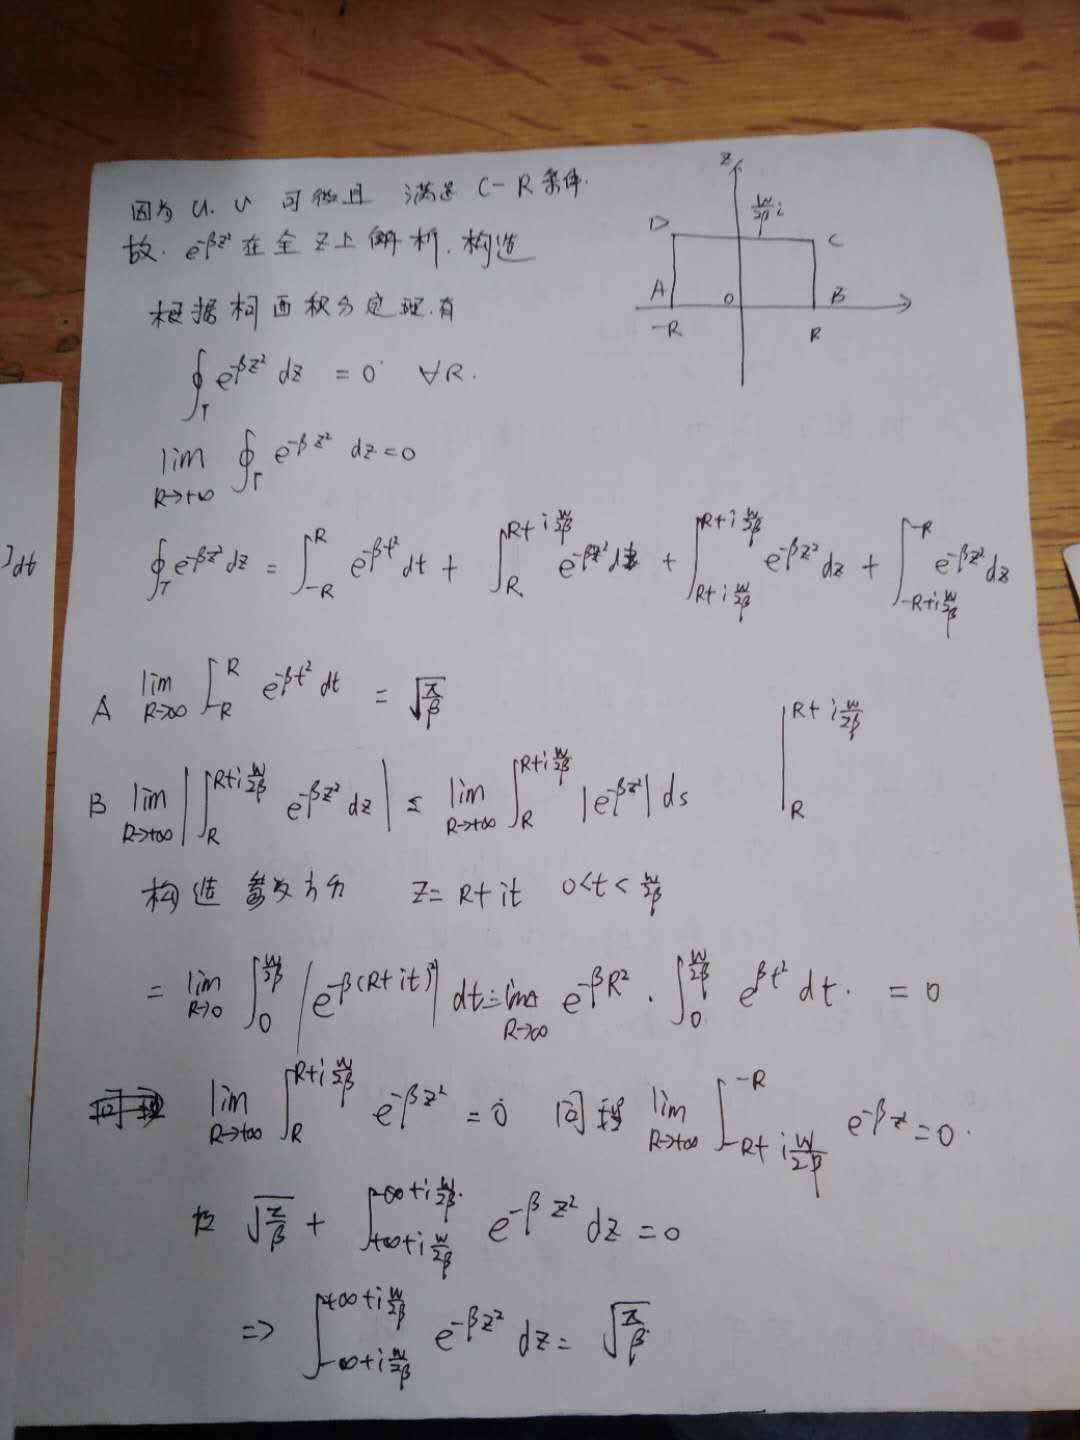 因为 u. v 可微且 满足 C-R条件.
故. e^{-βz²} 在全 z 上解析. 构造
根据柯西积分定理.有
z
w/2β i
D
C
A
O
B
-R
R
∮_Γ e^{-βz²} dz = 0 ∀R.
lim_{R→+∞} ∮_Γ e^{-βz²} dz=0
∮_Γ e^{-βz²} dz = ∫_{-R}^{R} e^{-βt²} dt + ∫_{R}^{R+i w/2β} e^{-βz²} dz + ∫_{R+i w/2β}^{R+i w/2β} e^{-βz²} dz + ∫_{-R+i w/2β}^{-R} e^{-βz²} dz
]dt
A lim_{R→∞} ∫_{-R}^{R} e^{-βt²} dt = √(π/β)
B lim_{R→+∞} |∫_{R}^{R+i w/2β} e^{-βz²} dz| ≤ lim_{R→+∞} ∫_{R}^{R+i w/2β} |e^{-βz²}| ds
R+ i w/2β
R
构造参数方 z= R+it 0<t< w/2β
= lim_{R→0} ∫_{0}^{w/2β} |e^{-β(R+it)²}| dt = lim_{R→∞} e^{-βR²} · ∫_{0}^{w/2β} e^{βt²} dt. = 0
lim_{R→+∞} ∫_{R}^{R+i w/2β} e^{-βz²} = 0 同理 lim_{R→+∞} ∫_{-R+i w/2β}^{-R} e^{-βz²} =0.
√(π/β) + ∫_{+∞+i w/2β}^{-∞+i w/2β} e^{-βz²} dz = 0
=> ∫_{-∞+i w/2β}^{+∞+i w/2β} e^{-βz²} dz = √(π/β)